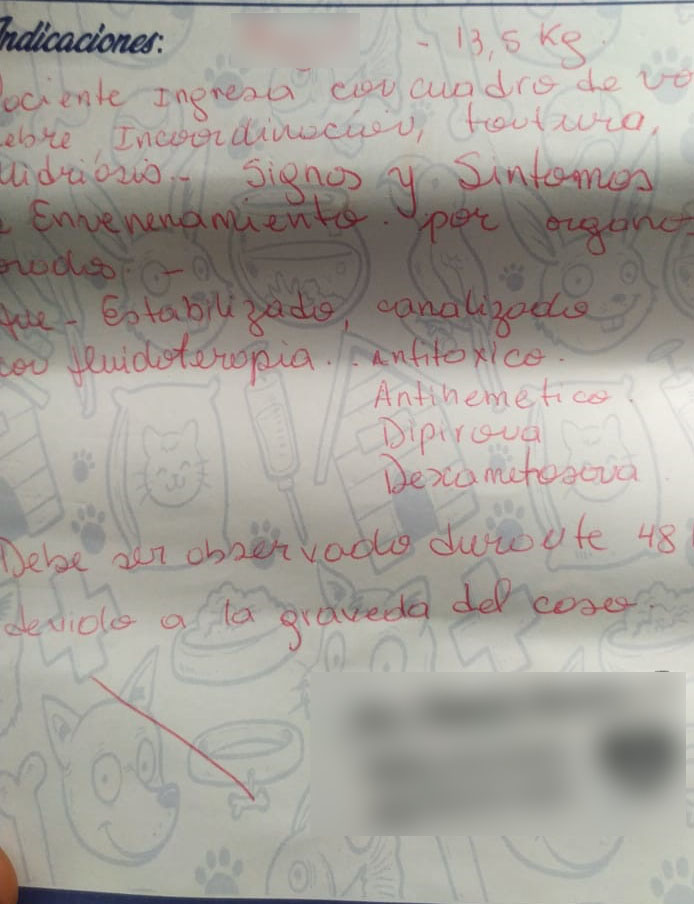 Indicaciones: - 13,5 Kg.
Paciente Ingresa con cuadro de vo
ebre, Incoordinación, toutura,
uidriosis.- Signos y Sintomos
e Envenenamiento. por organo
orados. -
fue - Estabilizado, canalizado
con fluidoterapia. . Antitoxico.
Antihemetico.
Dipirona
Dexametasona
Debe ser observado durante 48
devido a la graveda del caso.